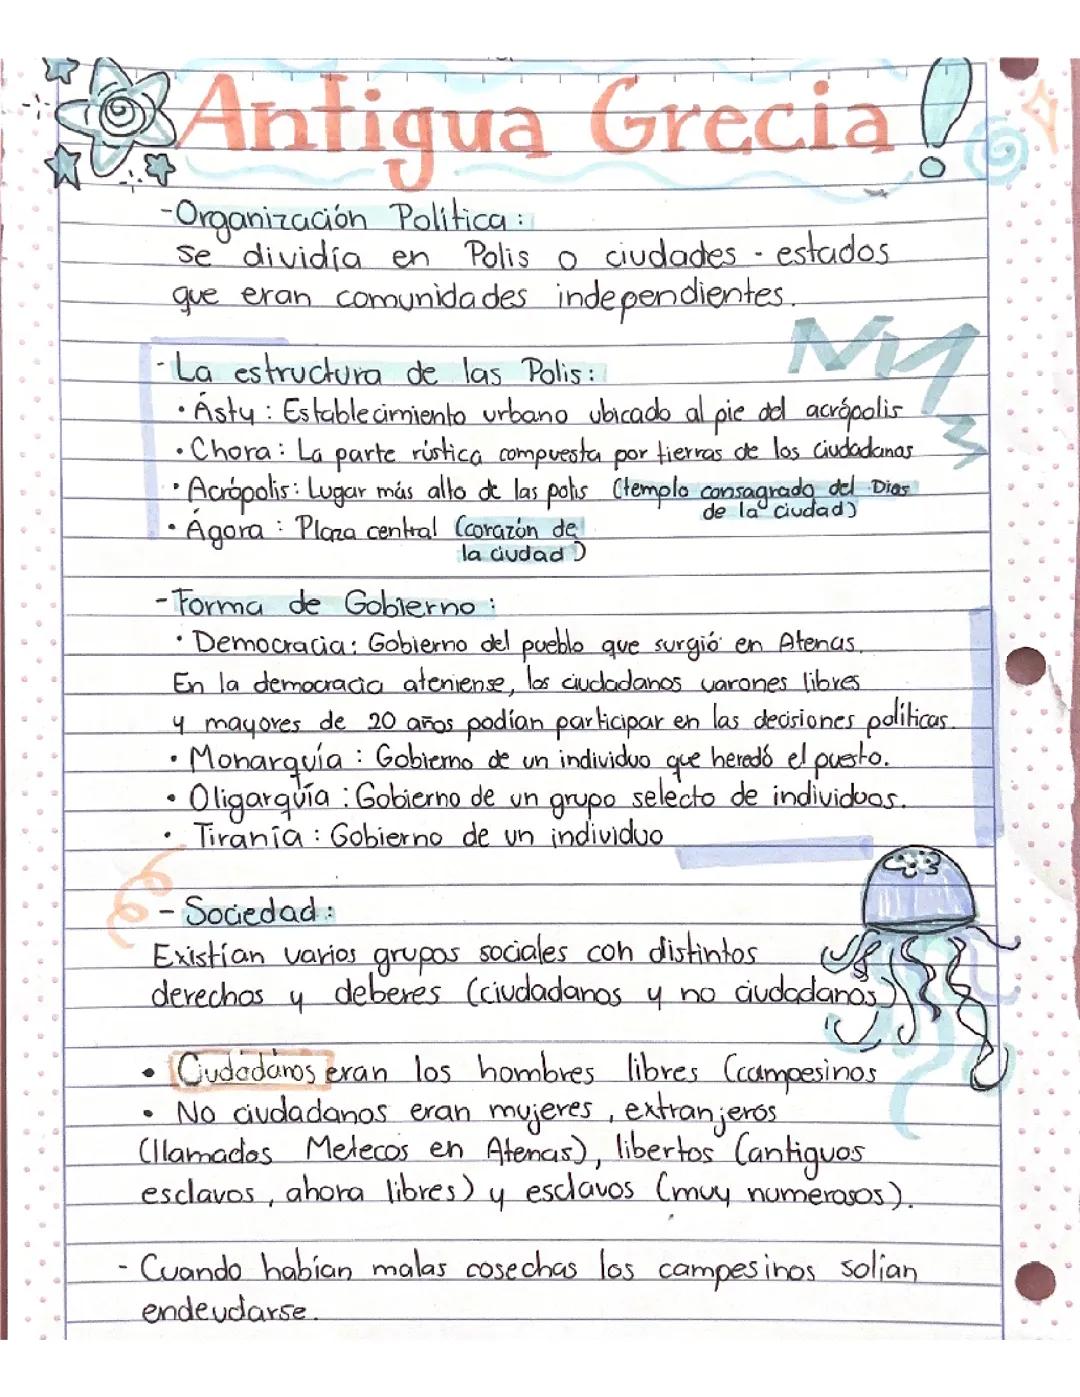 Antigua Grecia!
-Organización Política:
se dividía en Polis o ciudades-estados
que eran comunidades independientes.
-La estructura de las Polis:
• Ásty: Establecimiento urbano ubicado al pie del acrópolis
• Chora: La parte rústica compuesta por tierras de los ciudadanos
• Acrópolis: Lugar más alto de las polis (templo consagrado del Dios
de la ciudad)
• Ágora: Plaza central (corazón de
la ciudad)
-Forma de Gobierno:
• Democracia: Gobierno del pueblo que surgió en Atenas.
En la democracia ateniense, los ciudadanos varones libres
y mayores de 20 años podían participar en las decisiones políticas.
• Monarquía: Gobierno de un individuo que heredó el puesto.
• Oligarquía: Gobierno de un grupo selecto de individuos.
• Tiranía: Gobierno de un individuo
- Sociedad:
Existían varios grupos sociales con distintos
derechos y deberes (ciudadanos y no ciudadanos)
• Ciudadanos eran los hombres libres (campesinos
• No ciudadanos eran mujeres, extranjeros
(llamados Metecos en Atenas), libertos (antiguos
esclavos, ahora libres) y esclavos (muy numerosos).
- Cuando habían malas cosechas los campesinos solían
endeudarse.